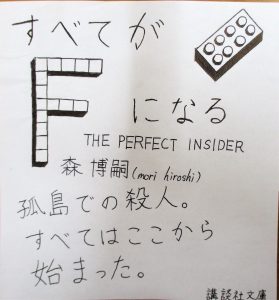 すべてが
Fになる
THE PERFECT INSIDER
森 博嗣(mori hiroshi)
孤島での殺人。
すべてはここから
始まった。
講談社文庫